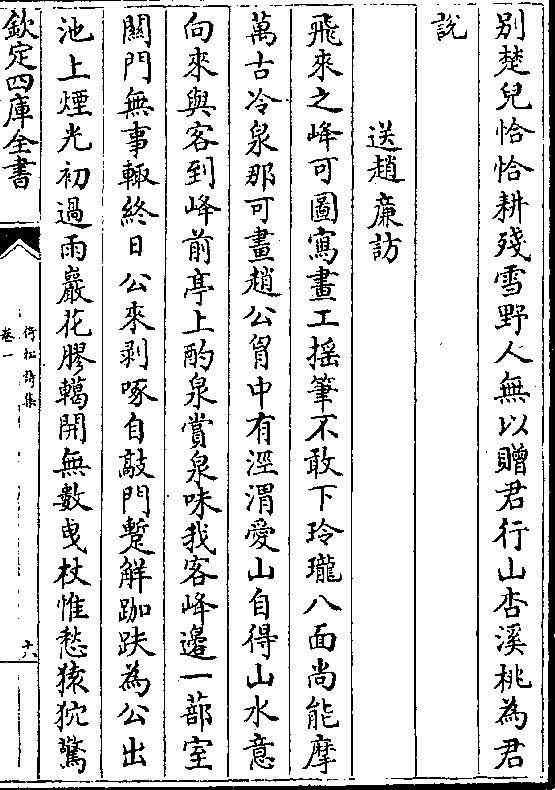 別楚兒恰恰耕殘雪野人無以贈君行山杏溪桃為君
說
送趙廉訪
飛來之峰可圖寫畫工揺筆不敢下玲瓏八面尚能摩
萬古冷泉那可畫趙公胷中有涇渭愛山自得山水意
向來與客到峰前亭上酌泉賞泉味我客峰邊一蔀室
闗門無事輙終日公來剥啄自敲門蹔觧跏趺為公出
池上煙光初過雨巖花膠轕開無數曳杖惟愁猿狖驚
欽定四庫全書
倚松詩集
卷一
十八